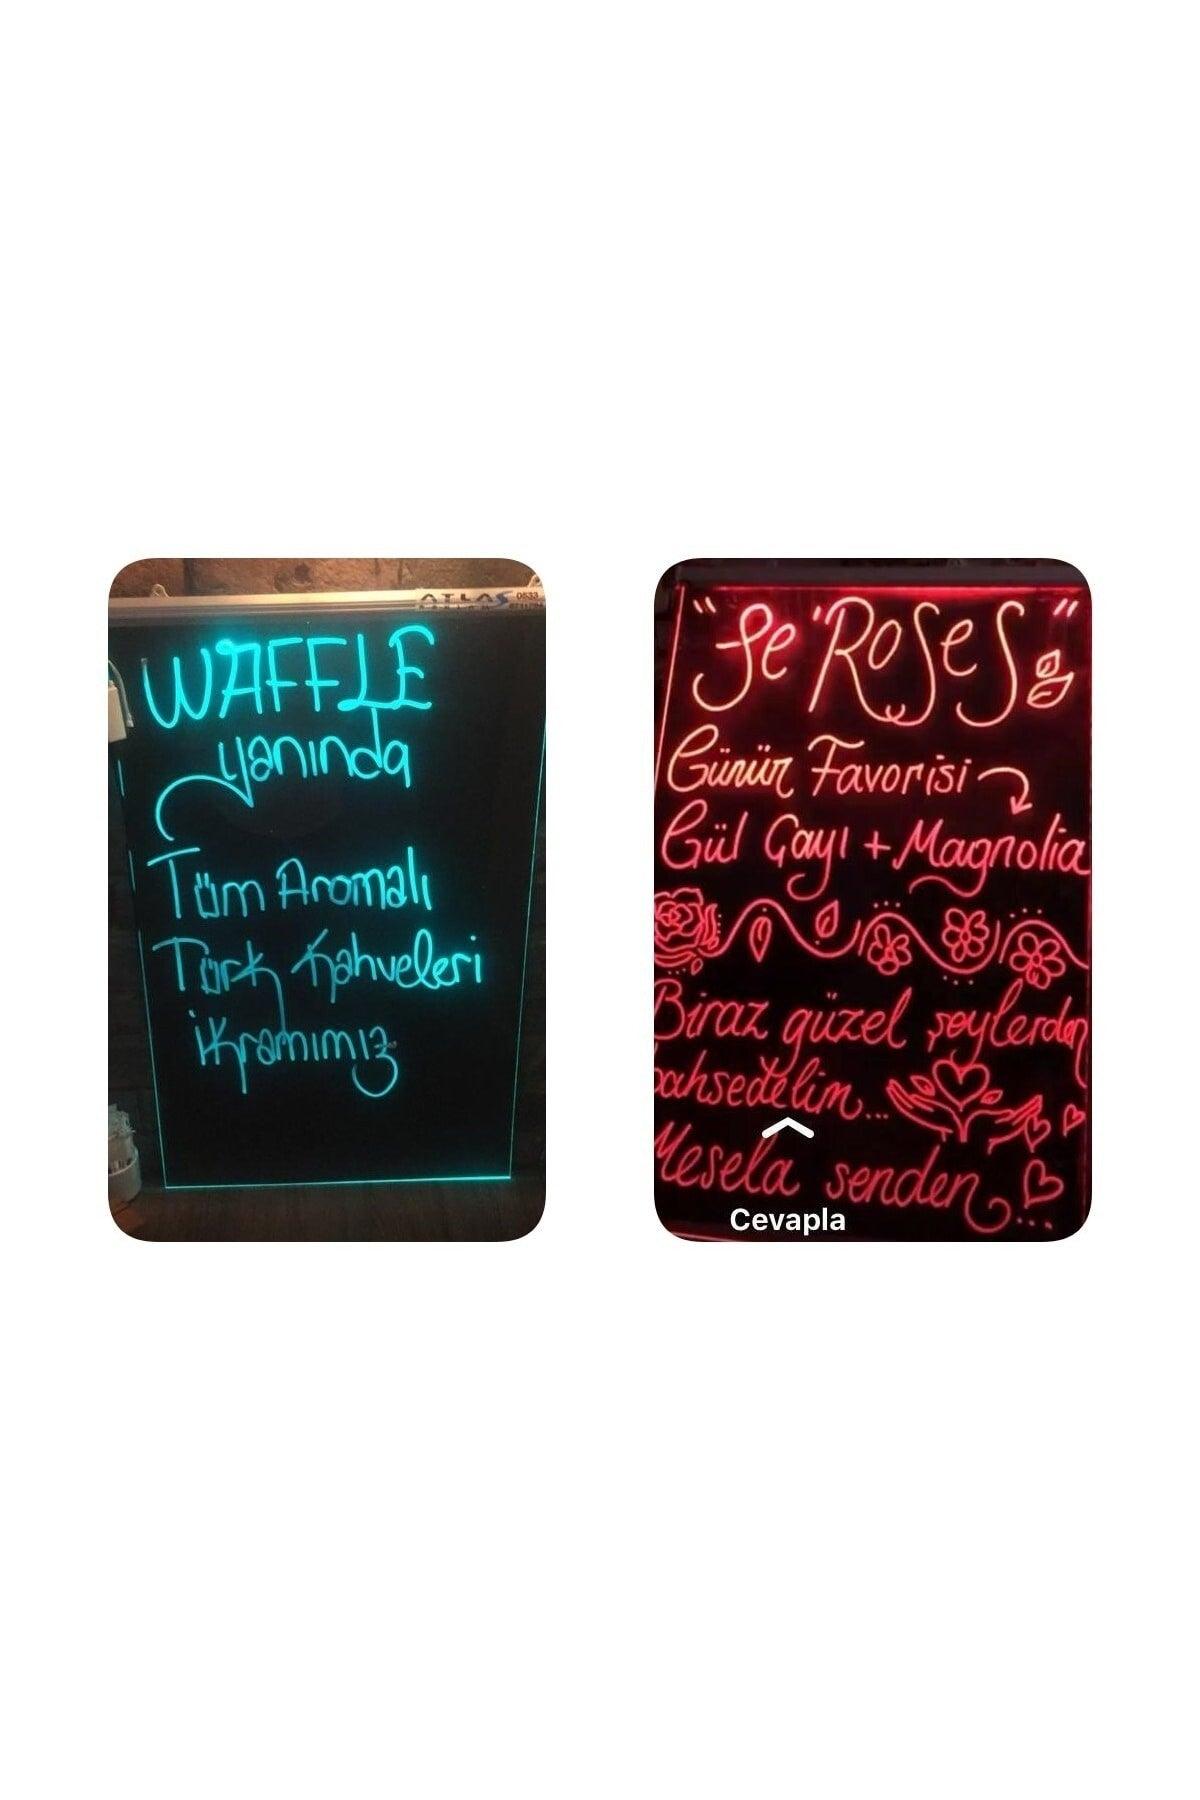 ATLAS 0533
WAFFLE
yanında
Tüm Aromalı
Türk Kahveleri
ikramımız
"Se'RoseS"
Günün Favorisi
Gül Çayı + Magnolia
Biraz güzel şeylerden
bahsedelim...
Mesela senden...
Cevapla